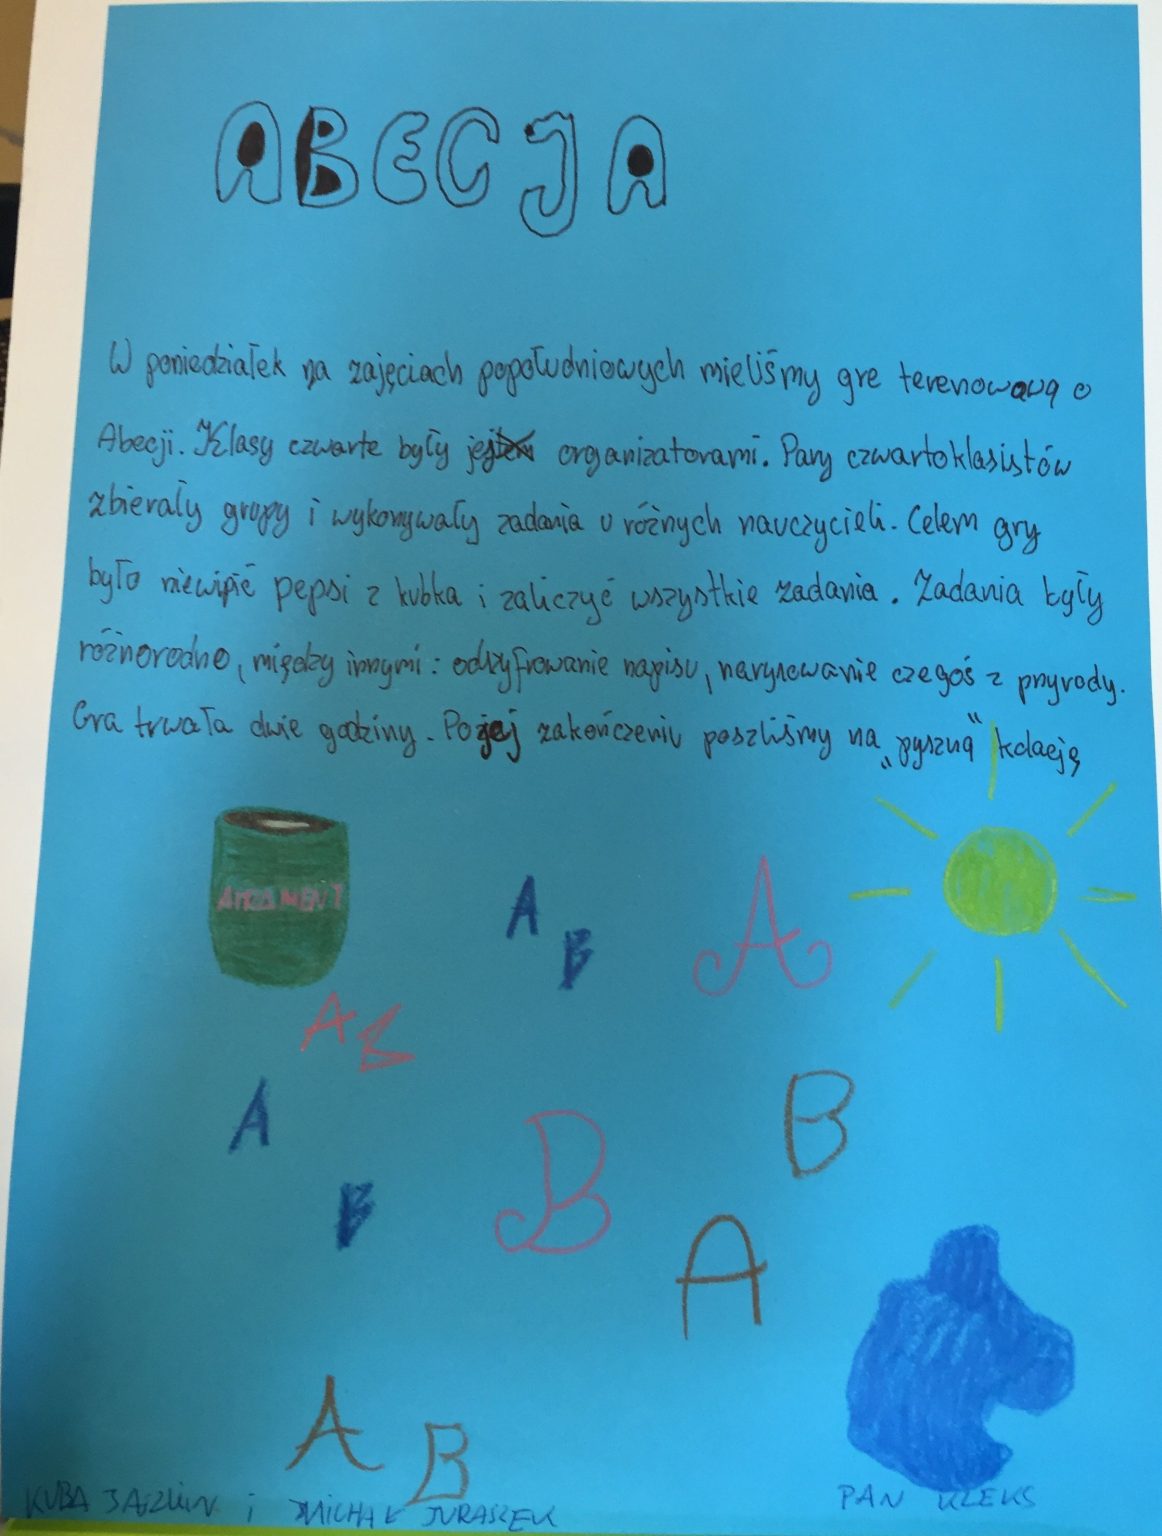 ABECJA
W poniedziałek na zajęciach popołudniowych mieliśmy gre terenową o
Abecji. Klasy czwarte były jej organizatorami. Pary czwartoklasistów
zbierały grupy i wykonywały zadania u różnych nauczycieli. Celem gry
było niewipić pepsi z kubka i zaliczyć wszystkie zadania. Zadania były
różnorodne, między innymi: odszyfrowanie napisu, narysowanie czegoś z przyrody.
Gra trwała dwie godziny. Po jej zakończeniu poszliśmy na „pyszną” kolację
ATRAMENT
A
B
A
A B
A
B
B
B
A
A B
KUBA i MICHAŁ JURASZEK
PAN KLEKS